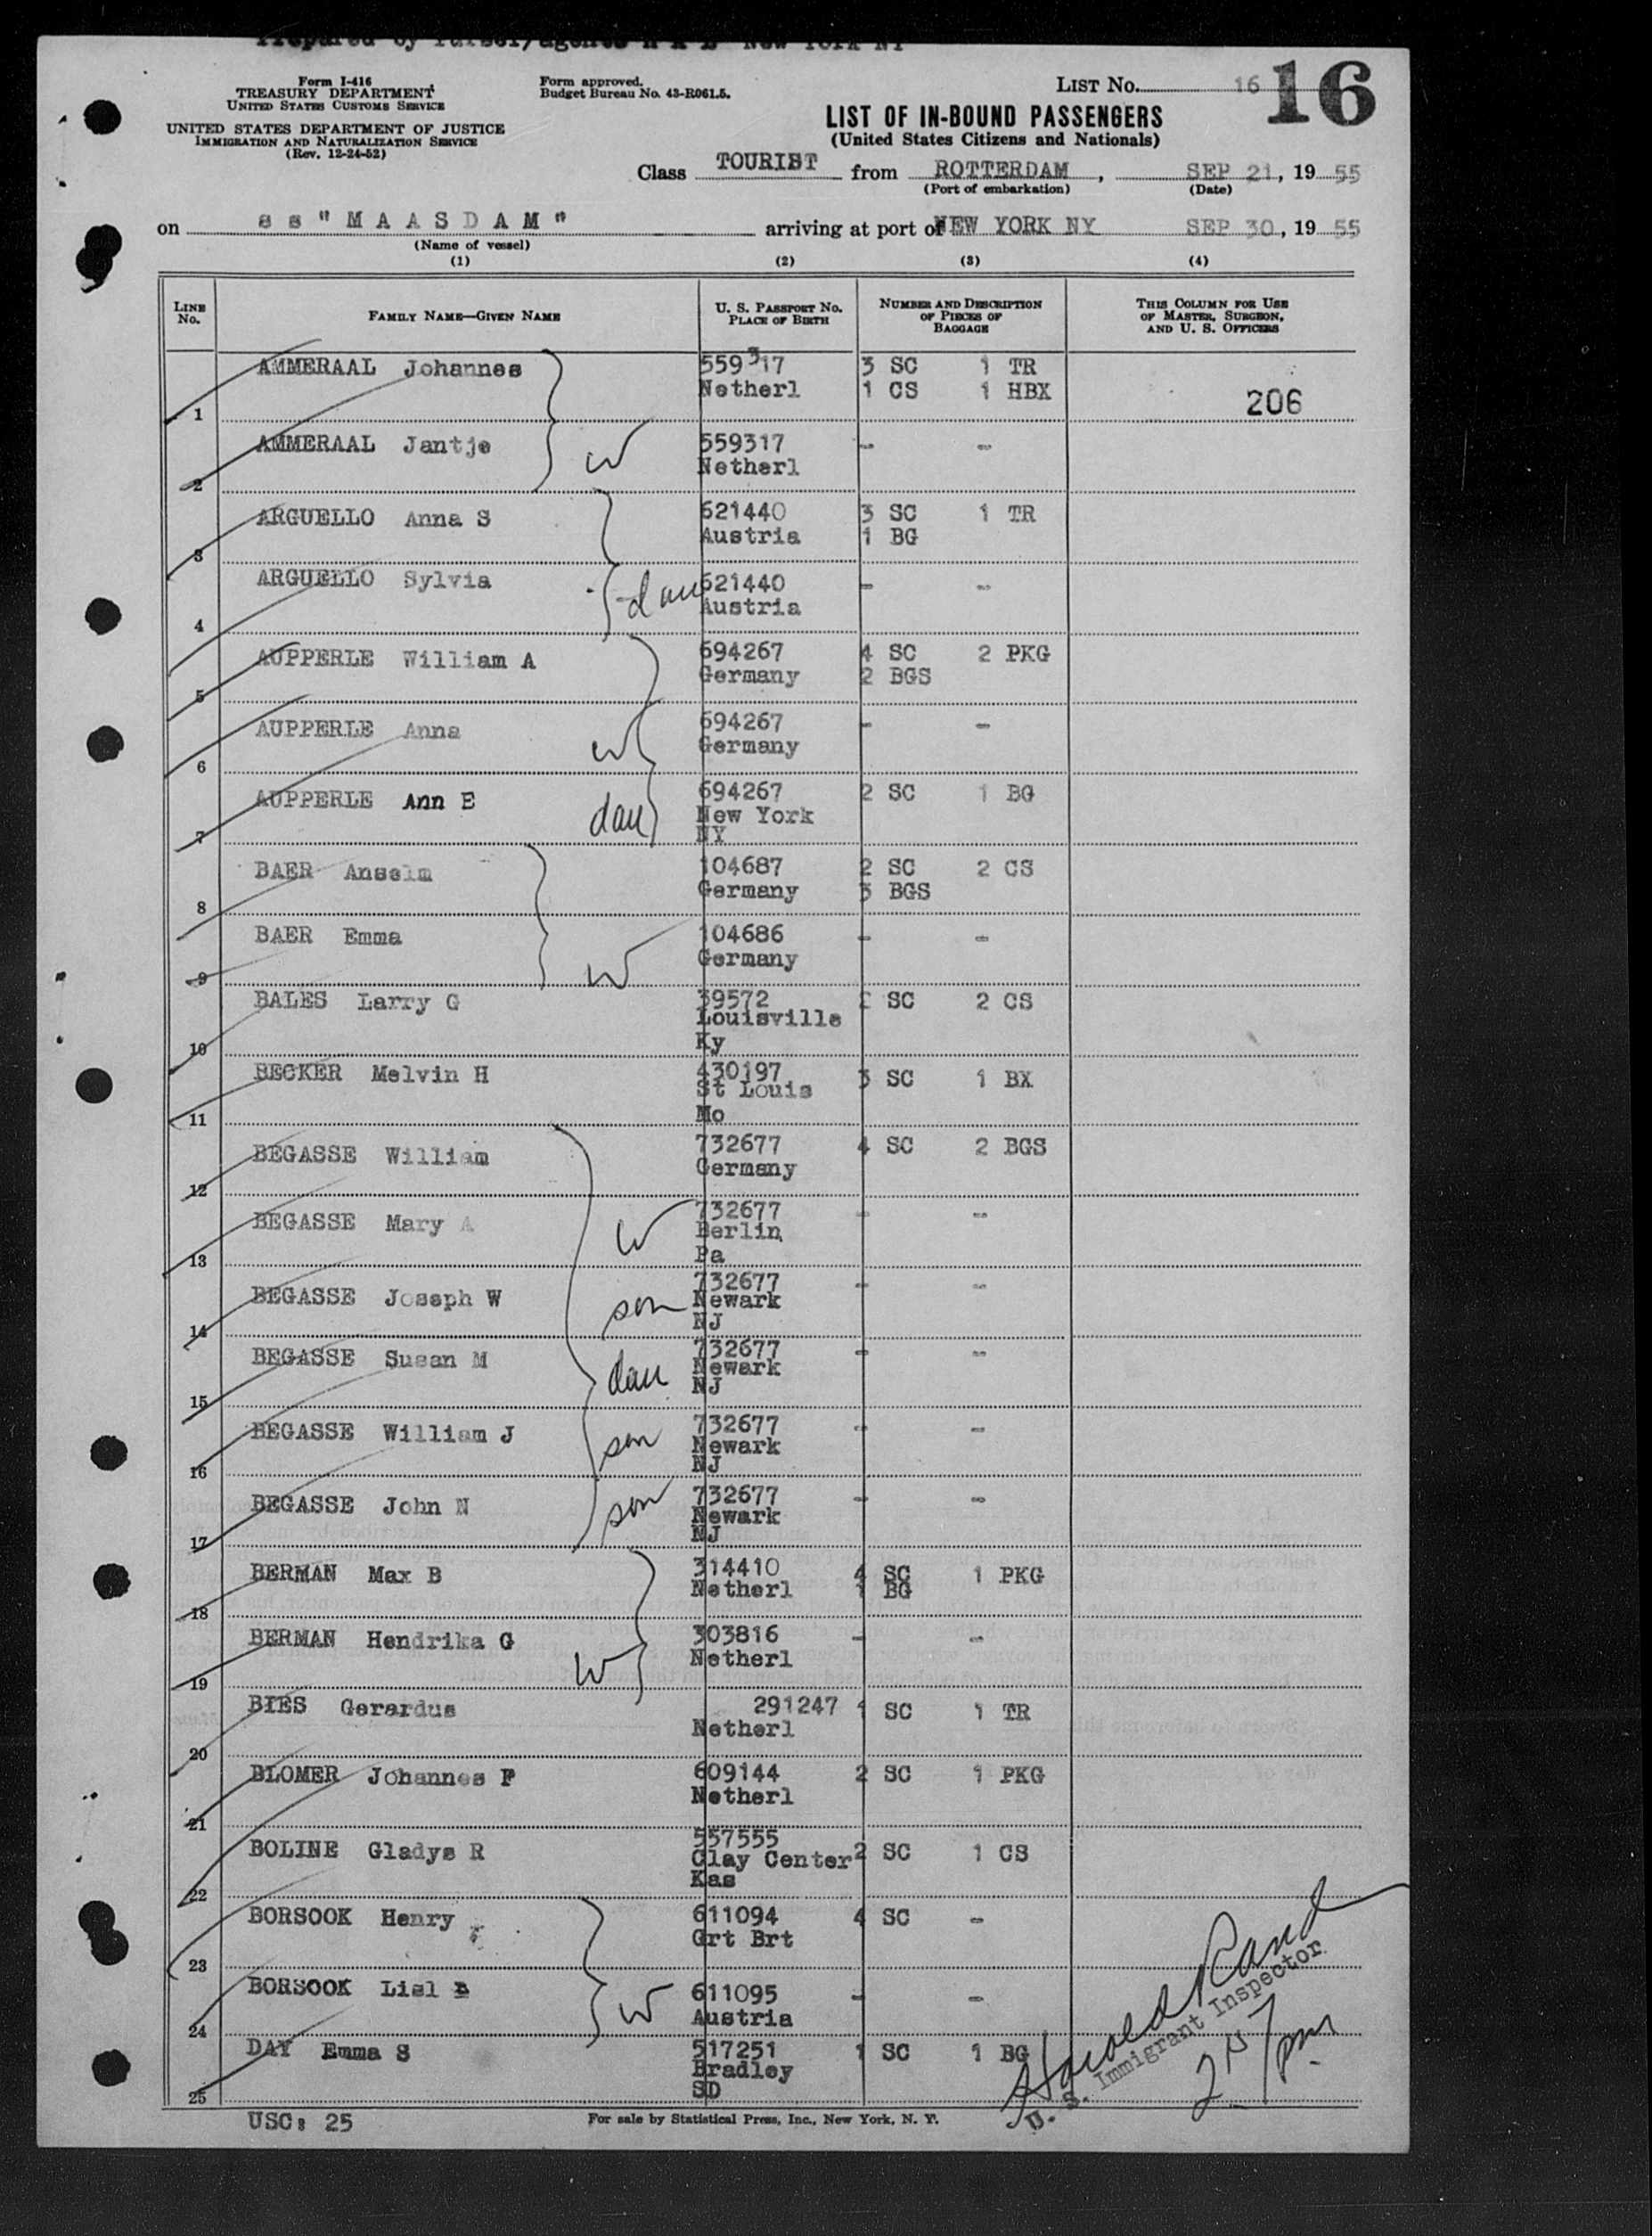 Prepared by Purser/agents H A L New York NY
Form I-416
TREASURY DEPARTMENT
UNITED STATES CUSTOMS SERVICE
UNITED STATES DEPARTMENT OF JUSTICE
IMMIGRATION AND NATURALIZATION SERVICE
(Rev. 12-24-52)
Form approved.
Budget Bureau No. 43-R061.5.
LIST No. 16 16
LIST OF IN-BOUND PASSENGERS
(United States Citizens and Nationals)
Class TOURIST from ROTTERDAM, SEP 21, 19 55
(Port of embarkation) (Date)
on s s "M A A S D A M" arriving at port of NEW YORK NY SEP 30, 19 55
(Name of vessel)
(1) (2) (3) (4)
LINE No. FAMILY NAME—GIVEN NAME U. S. PASSPORT NO. PLACE OF BIRTH NUMBER AND DESCRIPTION OF PIECES OF BAGGAGE THIS COLUMN FOR USE OF MASTER, SURGEON, AND U. S. OFFICERS
AMMERAAL Johannes 559317 3 SC 1 TR
Netherl 1 CS 1 HBX
1 206
AMMERAAL Jantje w 559317 - -
Netherl
2
ARGUELLO Anna S 621440 3 SC 1 TR
Austria 1 BG
3
ARGUELLO Sylvia dau 621440 - -
Austria
4
AUPPERLE William A 694267 4 SC 2 PKG
Germany 2 BGS
5
AUPPERLE Anna w 694267 - -
Germany
6
AUPPERLE Ann E dau 694267 2 SC 1 BG
New York
NY
7
BAER Anselm 104687 2 SC 2 CS
Germany 3 BGS
8
BAER Emma w 104686 - -
Germany
9
BALES Larry G 39572 SC 2 CS
Louisville
Ky
10
BECKER Melvin H 430197 3 SC 1 BX
St Louis
Mo
11
BEGASSE William 732677 4 SC 2 BGS
Germany
12
BEGASSE Mary A w 732677 - -
Berlin
Pa
13
BEGASSE Joseph W son 732677 - -
Newark
NJ
14
BEGASSE Susan M dau 732677 - -
Newark
NJ
15
BEGASSE William J son 732677 - -
Newark
NJ
16
BEGASSE John N son 732677 - -
Newark
NJ
17
BERMAN Max B 314410 4 SC 1 PKG
Netherl 1 BG
18
BERMAN Hendrika G w 303816 - -
Netherl
19
BIES Gerardus 291247 1 SC 1 TR
Netherl
20
BLOMER Johannes F 609144 2 SC 1 PKG
Netherl
21
BOLINE Gladys R 557555 2 SC 1 CS
Clay Center
Kas
22
BORSOOK Henry 611094 4 SC -
Grt Brt
23
BORSOOK Lisl w 611095 - -
Austria
24
DAY Emma S 517251 1 SC 1 BG
Bradley
SD
25
Harold Rand
U. S. Immigrant Inspector
USC: 25
For sale by Statistical Press, Inc., New York, N. Y.